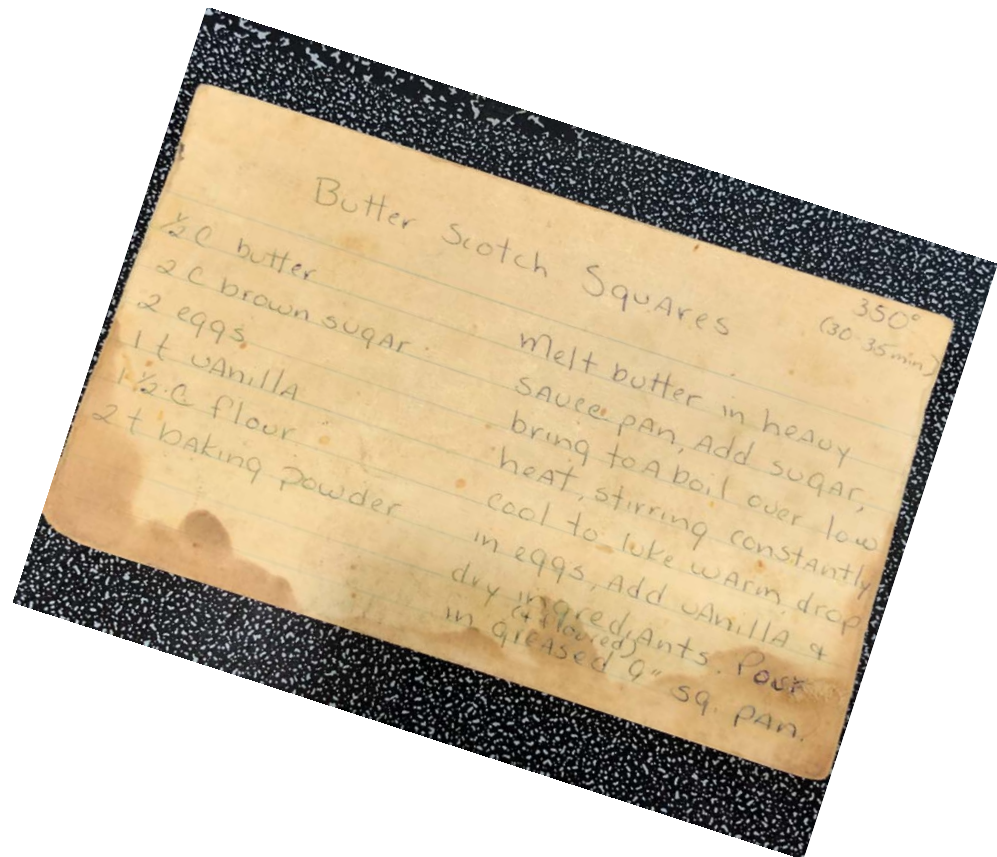 Butter Scotch Squares
350°
(30-35 min)
½ C butter
2 C brown sugar.
2 eggs
1 t vanilla
1 ½ C flour
2 t baking powder
Melt butter in heavy
sauce pan, add sugar,
bring to a boil over low
heat, stirring constantly
cool to luke warm, drop
in eggs, add vanilla &
dry ingrediants. Pour
(& floured)
in greased 9" sq. pan.